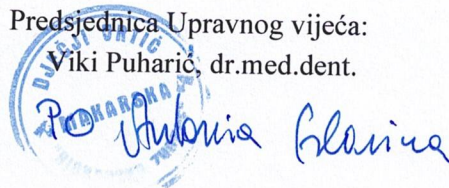 Predsjednica Upravnog vijeća:
Viki Puharić, dr.med.dent.
DJEČJI VRTIĆ
MAKARSKA
PO Antonia Glavina